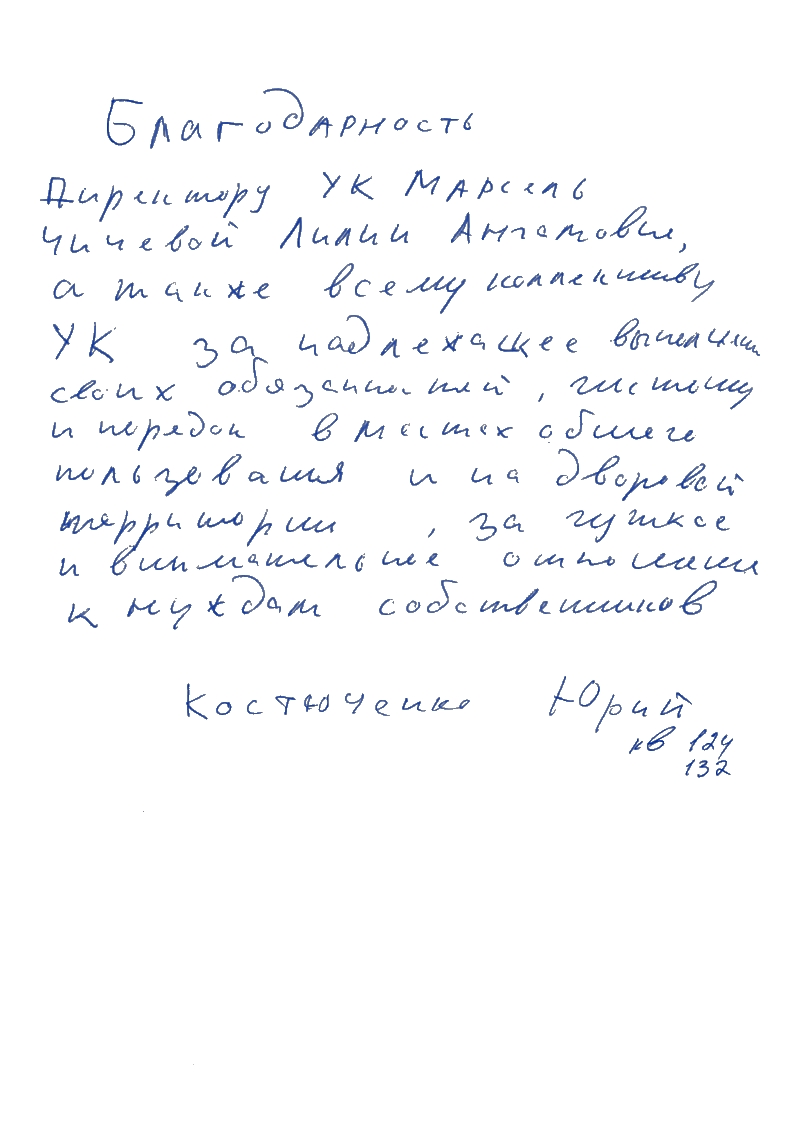 Благодарность
Директору УК Марсель
Чичевой Лилии
а также всему коллективу
УК за надлежащее выполнении
своих обязанностей, чистоту
и порядок в местах общего
пользования и на дворовой
территории, за чуткое
и внимательное отношение
к нуждам собственников
Костюченко Юрий
кв 124
132